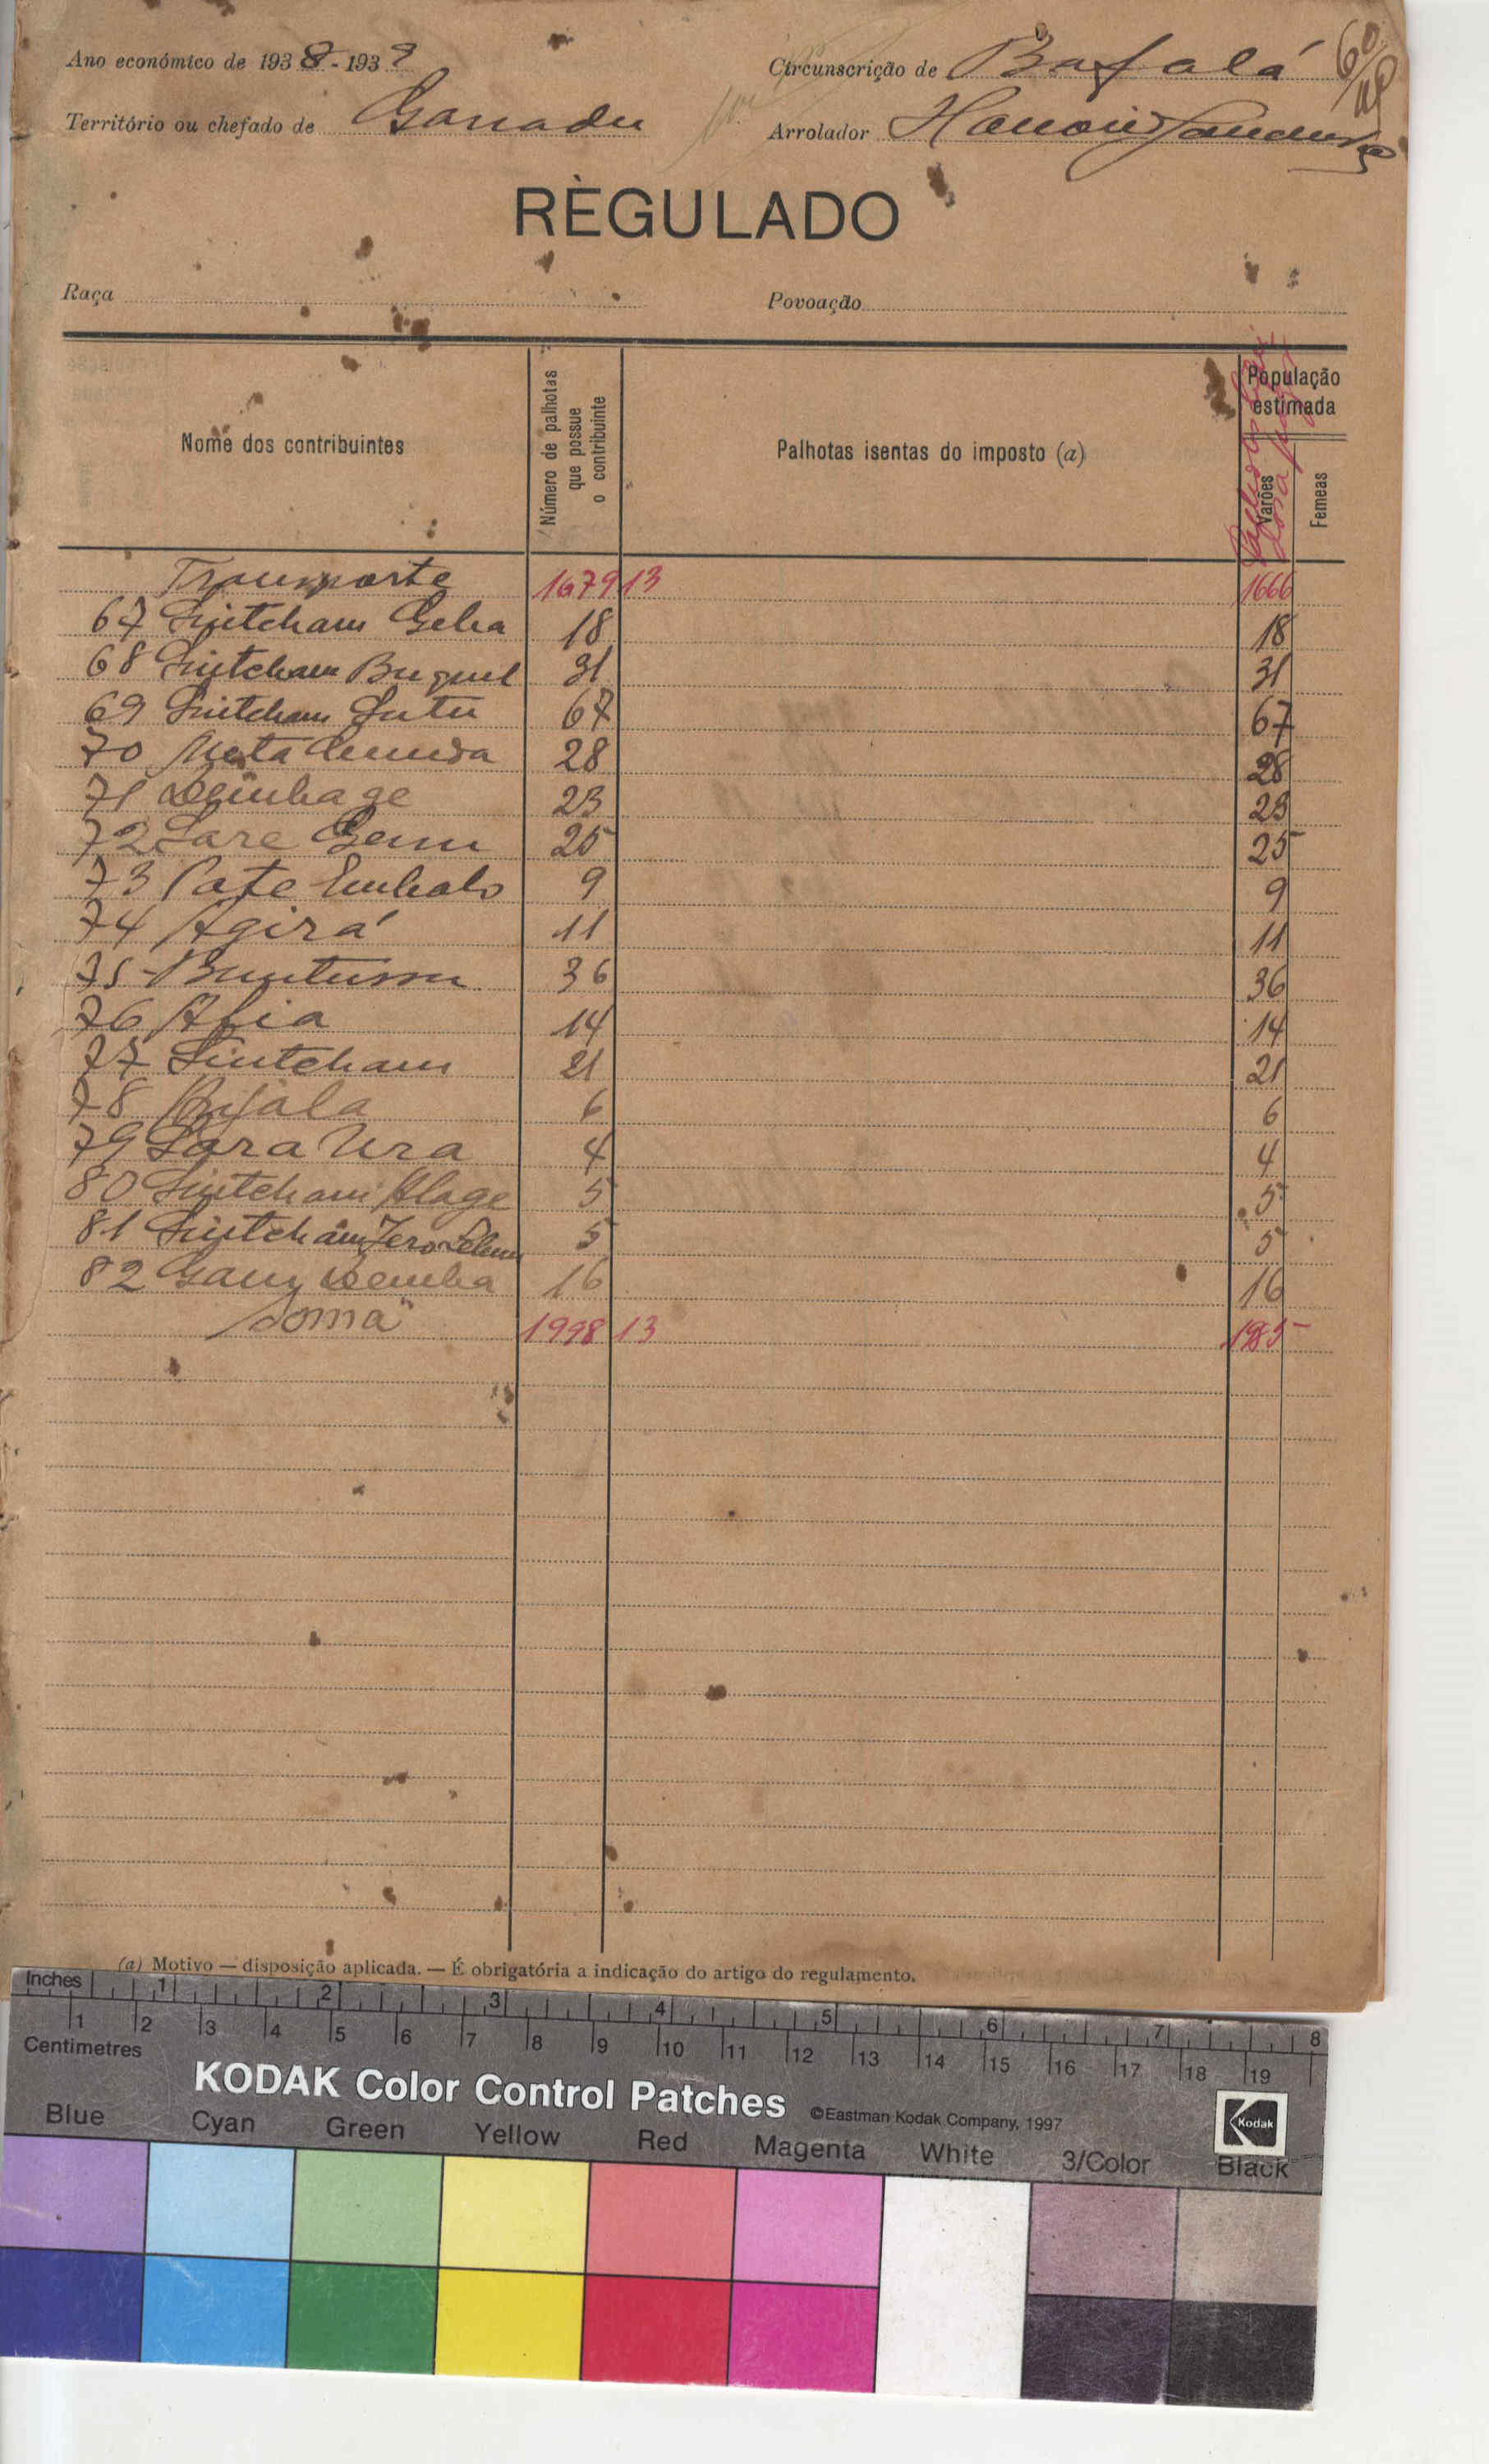 Ano económico de 1938-1939 Circunscrição de Bafatá 60
Território ou chefado de Ganadu Arrolador
RÈGULADO
Raça Povoação
Nome dos contribuintes Número de palhotas que possue o contribuinte Palhotas isentas do imposto (a) População estimada Varões Femeas
Transporte 1679 13 1666
67 Sintcham Geba 18 18
68 Sintcham 31 31
69 Sintcham Sutu 67 67
70 28 28
71 23 23
72 Sare 25 25
73 Pate Embalo 9 9
74 Agirá 11 11
75 Buntusu 36 36
76 Afia 14 14
77 Sintcham 21 21
78 6 6
79 Sara Ura 4 4
80 Sintcham Alage 5 5
81 Sintcham Jero 5 5
82 Demba 16 16
Soma 1998 13 1985
(a) Motivo — disposição aplicada. — É obrigatória a indicação do artigo do regulamento.
Inches 1 2 3 4 5 6 7 8
1 2 3 4 5 6 7 8 9 10 11 12 13 14 15 16 17 18 19
Centimetres
KODAK Color Control Patches ©Eastman Kodak Company, 1997 Kodak
Blue Cyan Green Yellow Red Magenta White 3/Color Black